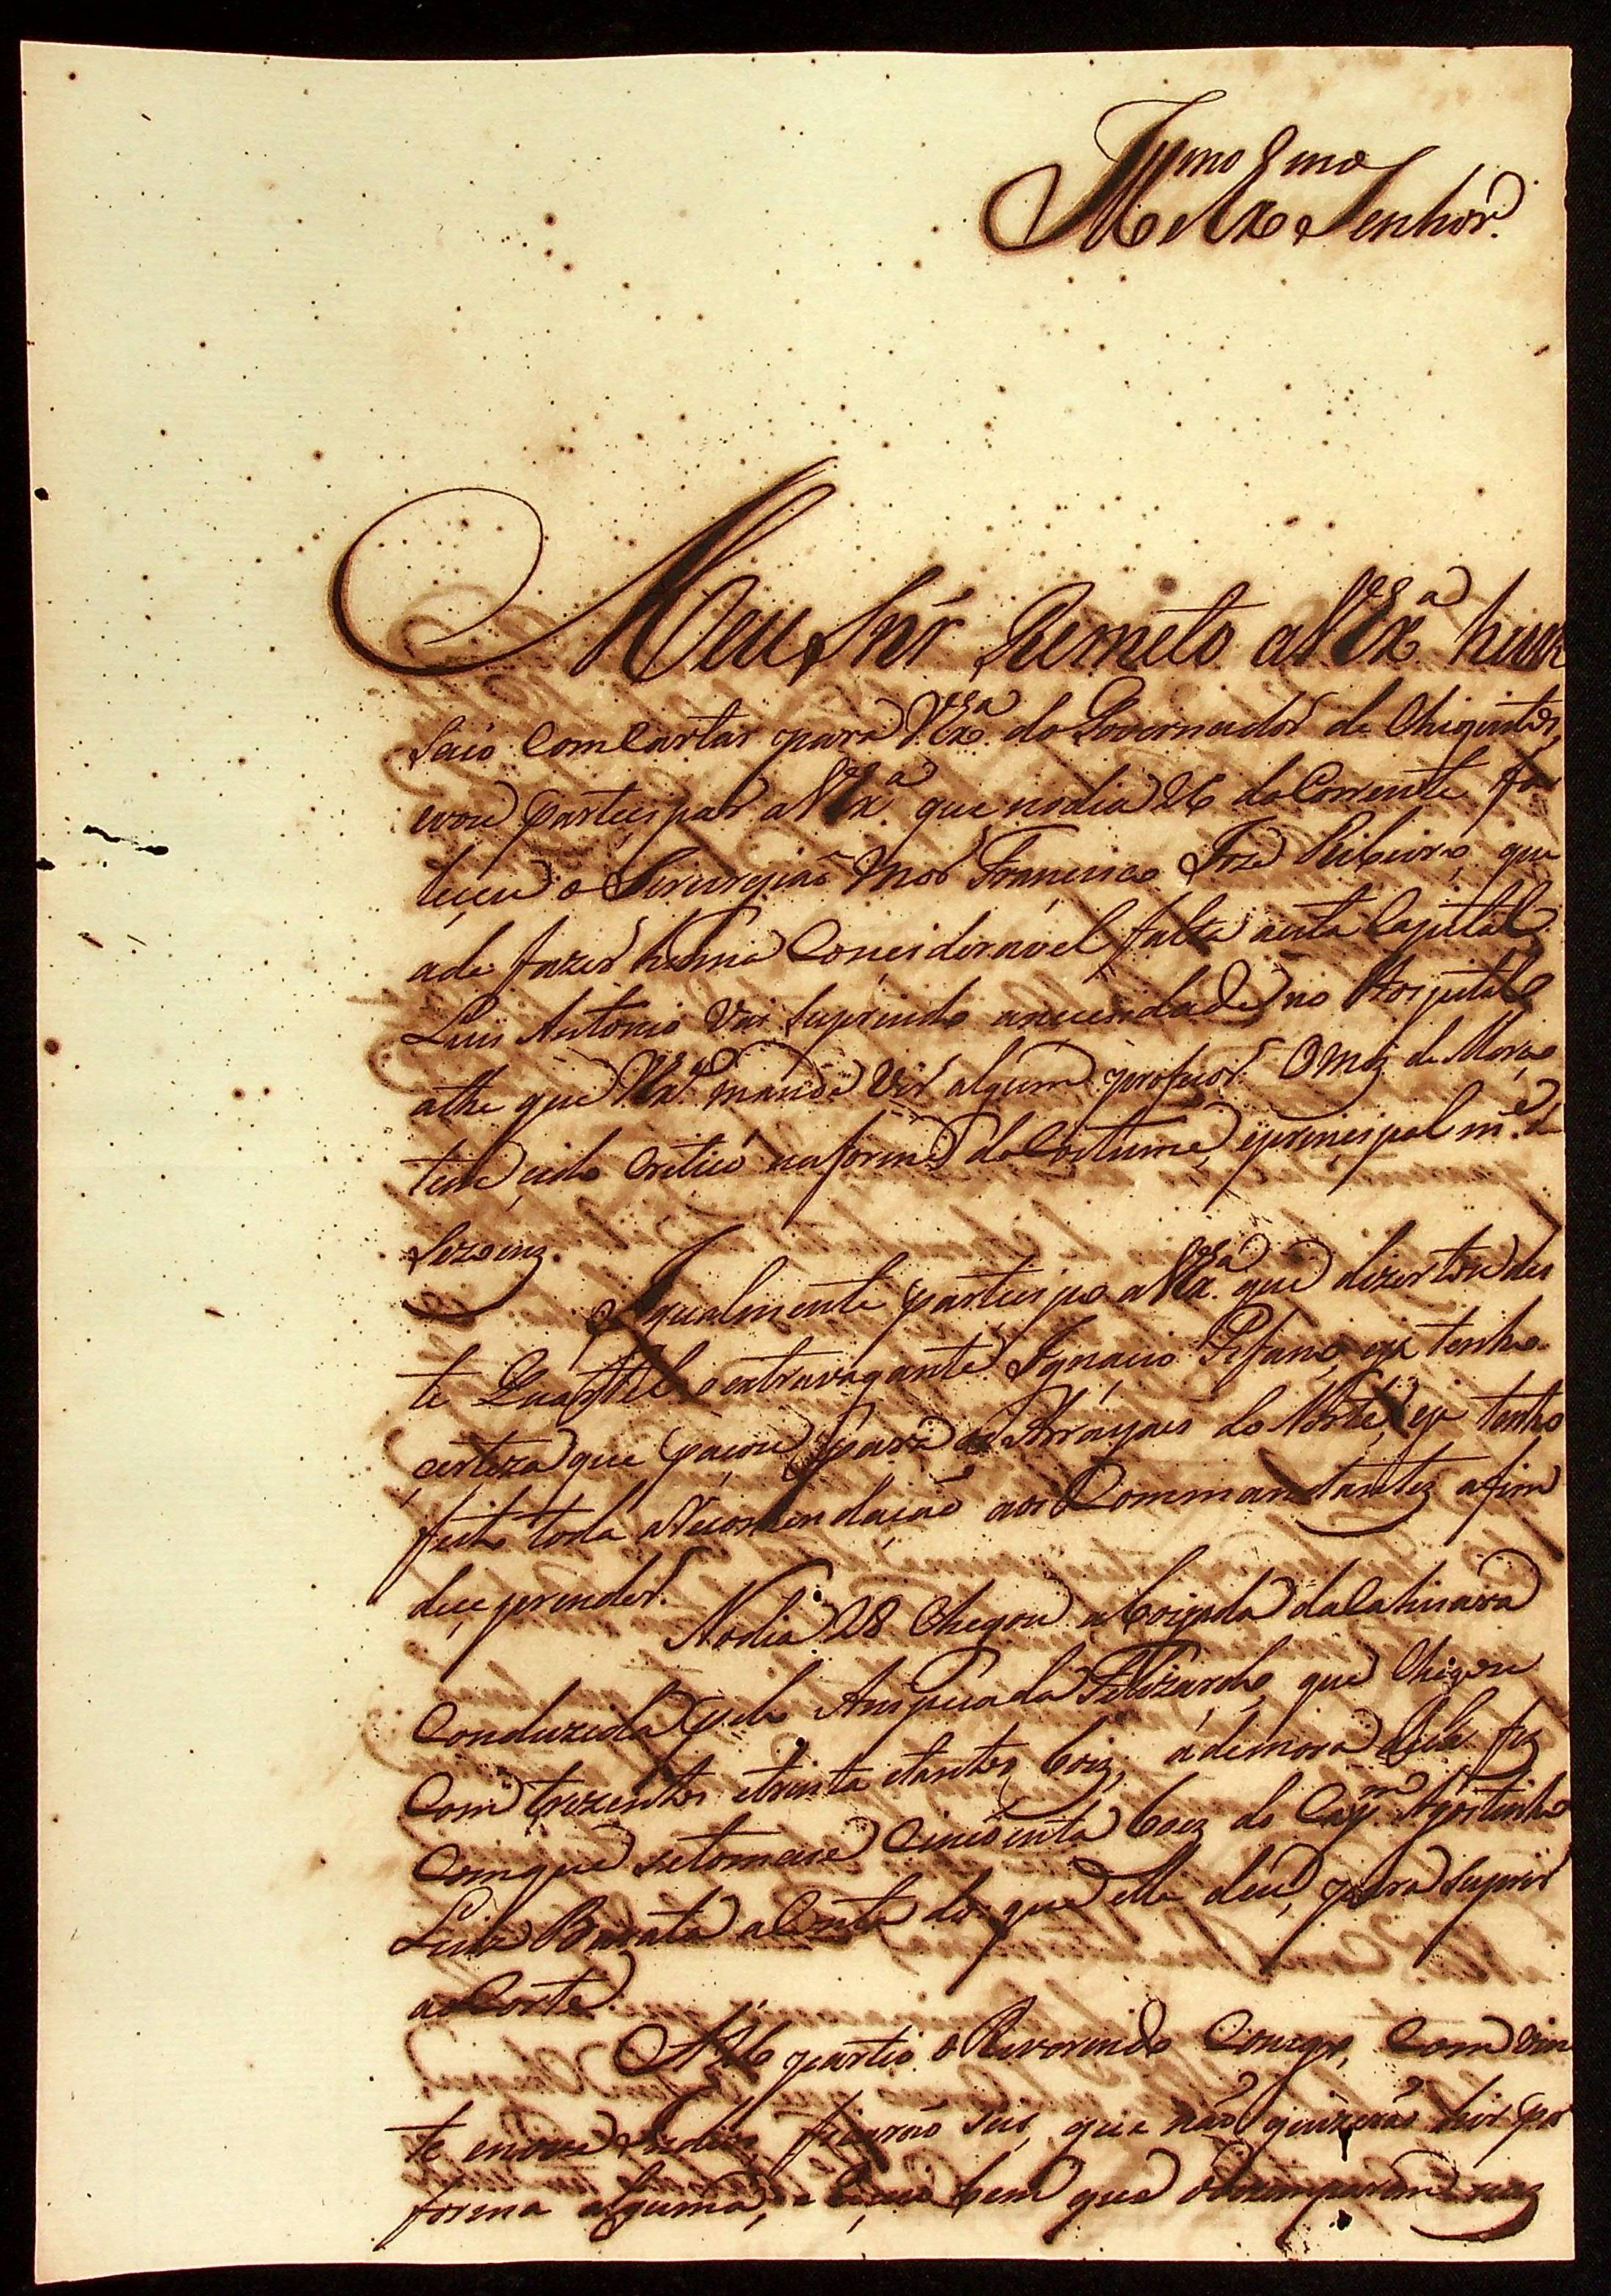 Illmo e Exmo Senhor.
Meu Snr Remeto a V. Exa. hum
Saco com Cartas para V. Exa. do Governador de Chiquitos,
e vou participar a V. Exa. que no dia 26 do Corrente fa
leceu o Sirurgião Mor Francisco Joze Ribeiro, que
a de fazer huma Concideravel falta nesta Capital.
Luis Antonio vai suprindo a necicidade no Hospital
athe que V. Exa. mande vir algum professor. O mez de Março
tem cido Critico na forma do Costume, e principalmte
Sezoens.
Igualmente participo a V. Exa. que dizertou des
te Quartel o extravagante Ignacio Pifano, e já tenho
certeza que paçou para os Arrayaes do Norte, e ja tenho
feito toda a Recomendação aos Commandantes afim
de ce prender.
No dia 28 Chegou a boiyada da Cahinara
Conduzida pelo Anspeçada Felizardo, que Chegou
Com trezentos e trinta e tantos boiz, a demora della fez
Com que se tomace Cincoenta boiz do Capm. Agostinho
Luiz Barata a Conta do que elle deu, para suprir
ao Corte.
A 26 partio o Reverendo Conego, Com vin
te e nove Indios, ficarão seis, que não quizerão hir por
forma alguma, e